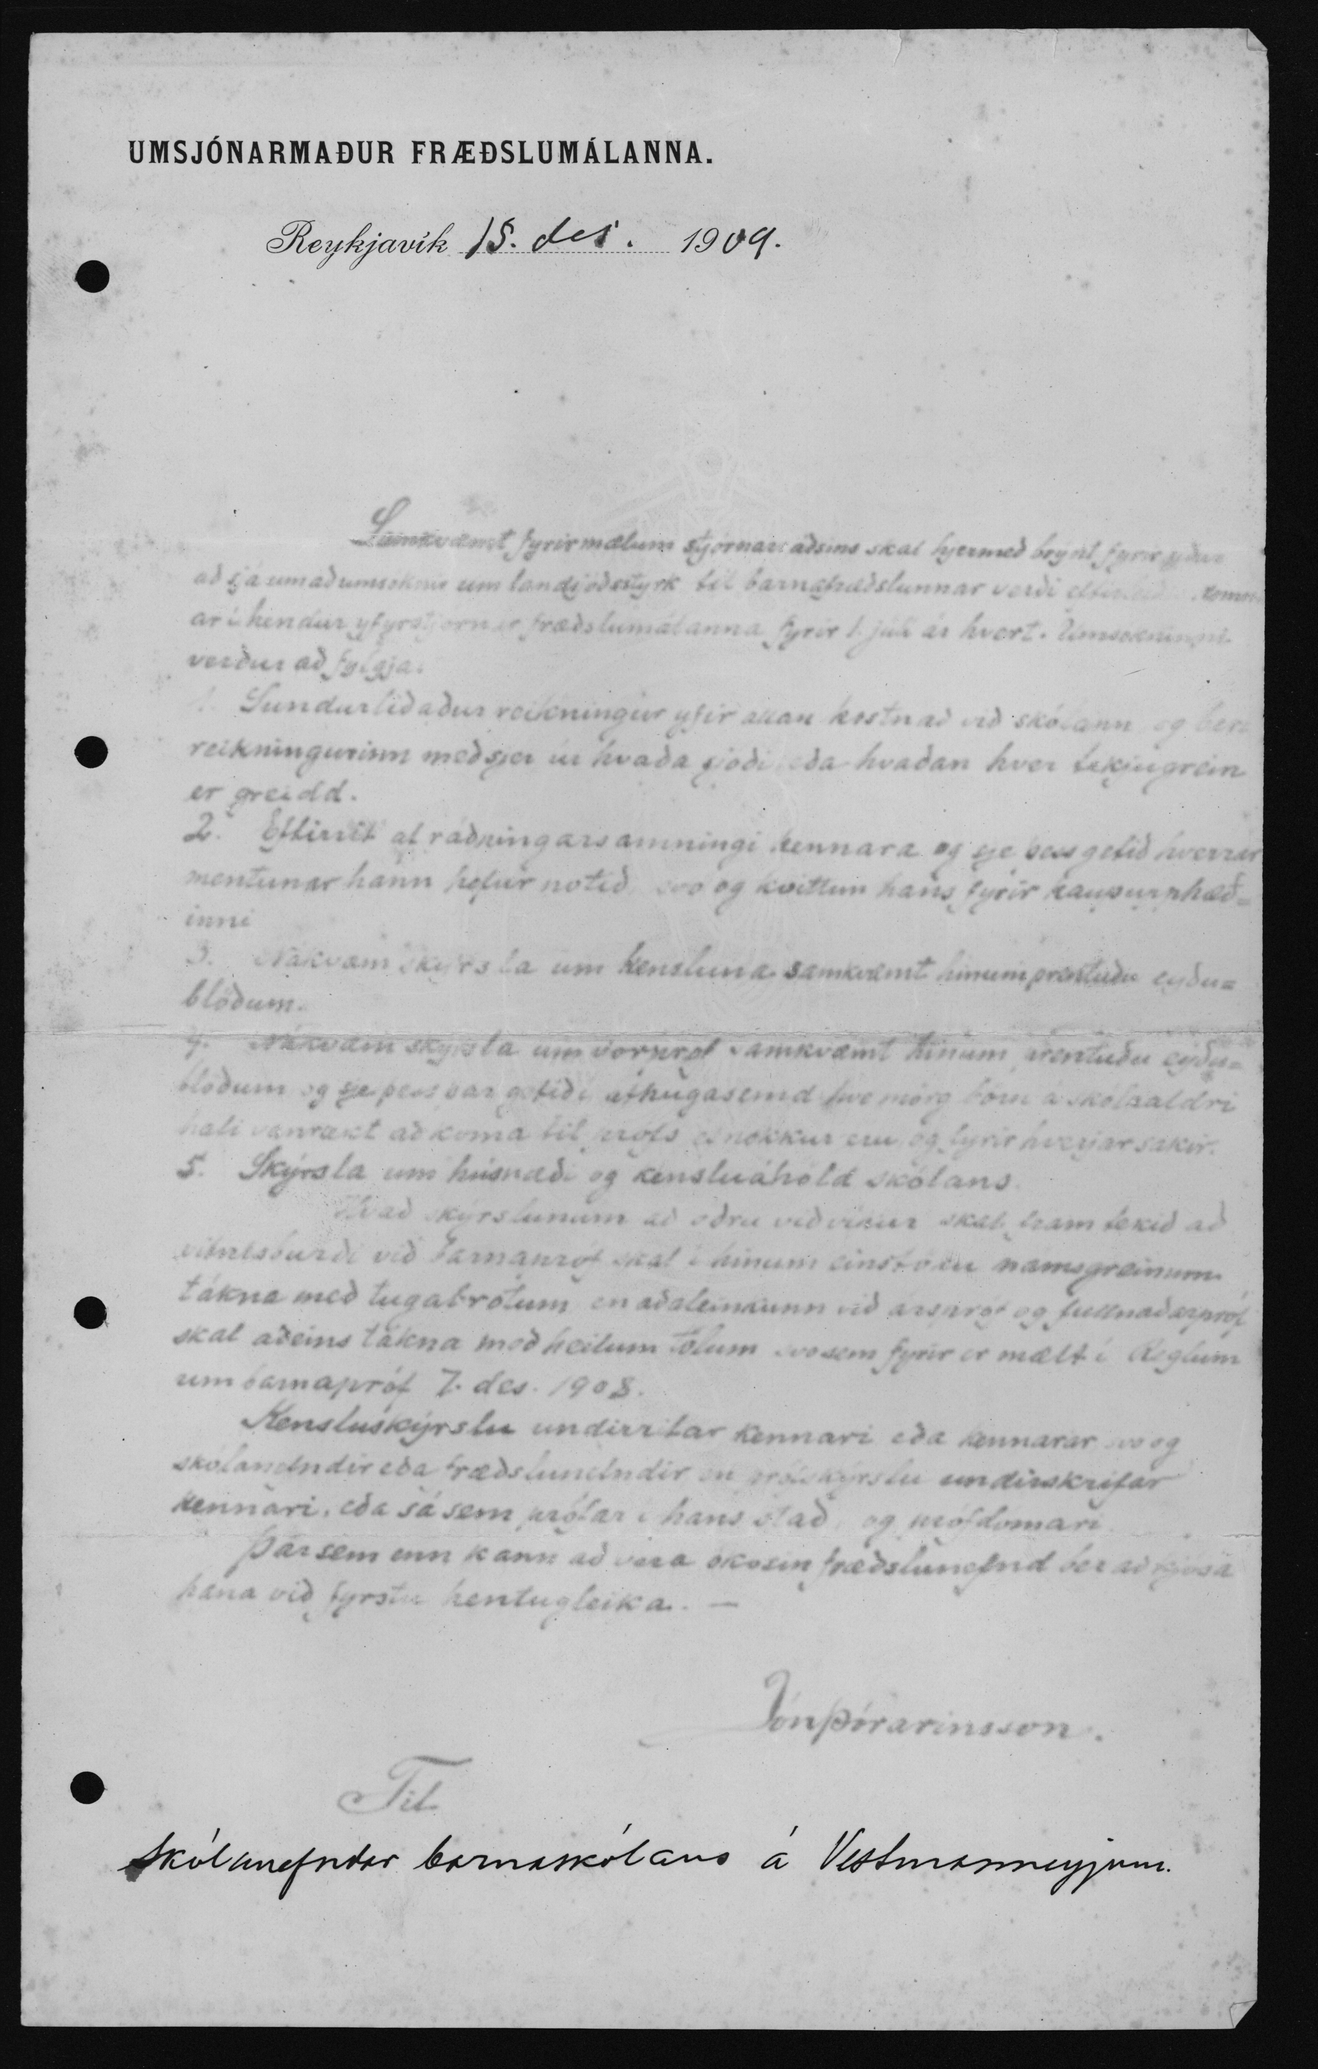 UMSJÓNARMAÐUR FRÆÐSLUMÁLANNA.
Reykjavík 15. des. 1909.
Samkvæmt fyrirmælum stjórnarráðsins skal hjermeð brýnt fyrir yður
að sjá um að umsóknir um landsjóðsstyrk til barnafræðslunnar verði komn
ar í hendur yfirstjórnar fræðslumálanna fyrir 1. júlí ár hvert. Umsókninni
verður að fylgja:
1. Sundurliðaður reikningur yfir allan kostnað við skólann og beri
reikningurinn með sjer úr hvaða sjóði eða hvaðan hver tekjugrein
er greidd.
2. Eftirrit af ráðningarsamningi kennara og sje þess getið hverrar
mentunar hann hefur notið, svo og kvittun hans fyrir kaupupphæð=
inni
3. Nákvæm skýrsla um kensluna samkvæmt hinum prentuðu eyðu=
blöðum.
4. Nákvæm skýrsla um vorpróf samkvæmt hinum prentuðu eyðu=
blöðum og sje þess þar getið í athugasemd hve mörg börn á skólaaldri
hafi vanrækt að koma til prófs ef nokkur eru og fyrir hverjar sakir.
5. Skýrsla um húsnæði og kensluáhöld skólans.
Hvað skýrslunum að öðru viðvíkur skal fram tekið að
vitnisburði við barnapróf skal í hinum einstöku námsgreinum
tákna með tugabrotum en aðaleinkunn við árspróf og fullnaðarpróf
skal aðeins tákna með heilum tölum svo sem fyrir er mælt í Reglum
um barnapróf 7. des. 1908.
Kensluskýrslu undirritar kennari eða kennarar svo og
skólanefndir eða fræðslunefndir en prófskýrslu undirskrifar
kennari, eða sá sem prófar í hans stað, og prófdómari
Þar sem enn kann að vera ókosin fræðslunefnd ber að kjósa
hana við fyrstu hentugleika. —
Jón Þórarinsson.
Til
skólanefndar barnaskólans á Vestmanneyjum.